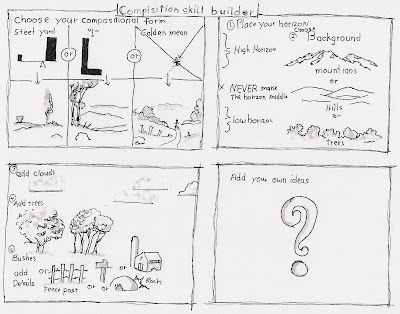 Compisition skill builder
Choose your compositional form
Steel yard
or
"L"
or
Golden mean
① Place your horizon
② choose
Background
{ High Horizon
mountians
or
x NEVER make
The horizon middle
Hills
or
{ low horizon
trees
③ add clouds
④ Add trees
⑤
Bushes
add
Details
or
or
or
Fence post
or
or
Rock
Add your own ideas
?